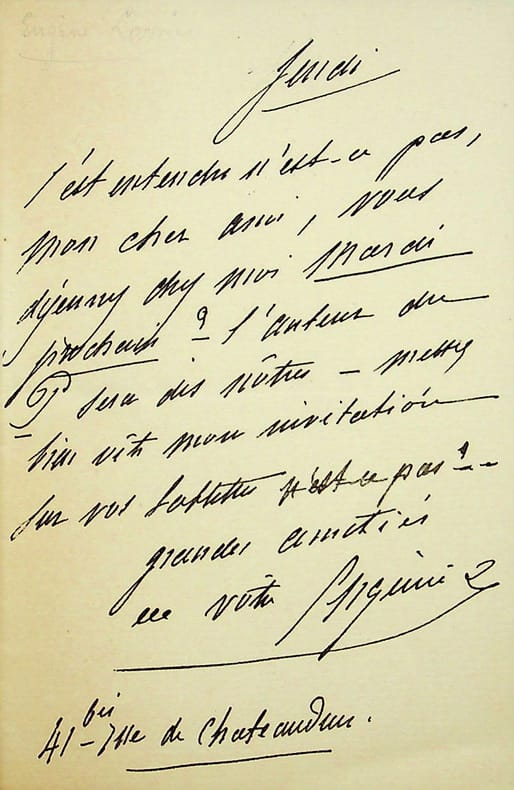 Jeudi
C'est entendu n'est-ce pas,
mon cher ami, vous
déjeunez chez moi mardi
prochain ? - l'auteur du
sera des nôtres - mettez
bien vite mon invitation
sur vos tablettes n'est-ce pas ? -
grandes amitiés
votre Eugénie
41 bis - rue de Chateaudun.